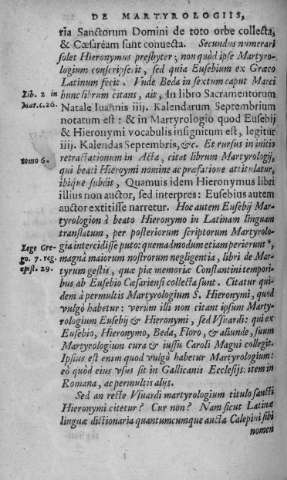 DE MARTYROLOGIIS,
tia Sanctorum Domini de toto orbe collecta,
& Cæsaræam sunt convecta. Secundus numerari
solet Hieronymus presbyter; non quòd ipse Martyro-
logium conscripserit, sed quia Eusebium ex Græco
Latinum fecit. Vnde Beda in sextum caput Marci
Lib. 2 in Mar. c. 26.
hunc librum citans, ait, In libro Sacramentorum
Natale Ioannis iiij. Kalendarum Septembrium
notatum est: & in Martyrologio quod Eusebij
& Hieronymi vocabulis insignitum est, legitur
iiij. Kalendas Septembris, &c. Et rursus in initio
retractationum in Acta, citat librum Martyrologij,
tomo 6.
qui beati Hieronymi nomine ac præfatione attitulatur,
ibique subdit, Quamuis idem Hieronymus libri
illius non auctor, sed interpres: Eusebius autem
auctor extitisse narretur. Hoc autem Eusebij Mar-
tyrologion à beato Hieronymo in Latinam linguam
translatum, per posteriorum scriptorum Martyrolo-
Lege Gre-
go. 7. reg.
epist. 29.
gia intercidisse puto: quemadmodum etiam perierunt,
magna maiorum nostrorum negligentia, libri de Mar-
tyrum gestis, quæ piæ memoriæ Constantini tempori-
bus ab Eusebio Cæsariensi collecta sunt. Citatur qui-
dem à permultis Martyrologium S. Hieronymi, quod
vulgò habetur: verum illi non citant ipsum Marty-
rologium Eusebij & Hieronymi, sed Vsuardi: qui ex
Eusebio, Hieronymo, Beda, Floro, & aliunde, suum
Martyrologium cura & iussu Caroli Magni collegit.
Ipsius est enim quod vulgò habetur Martyrologium:
eò quòd eius vsus sit in Gallicanis Ecclesijs: item in
Romana, ac permultis alijs.
Sed an rectè Vsuardi martyrologium titulo sancti
Hieronymi citetur? Cur non? Nam sicut Latinæ
linguæ dictionaria quantumcumque aucta Calepini sibi
nomen